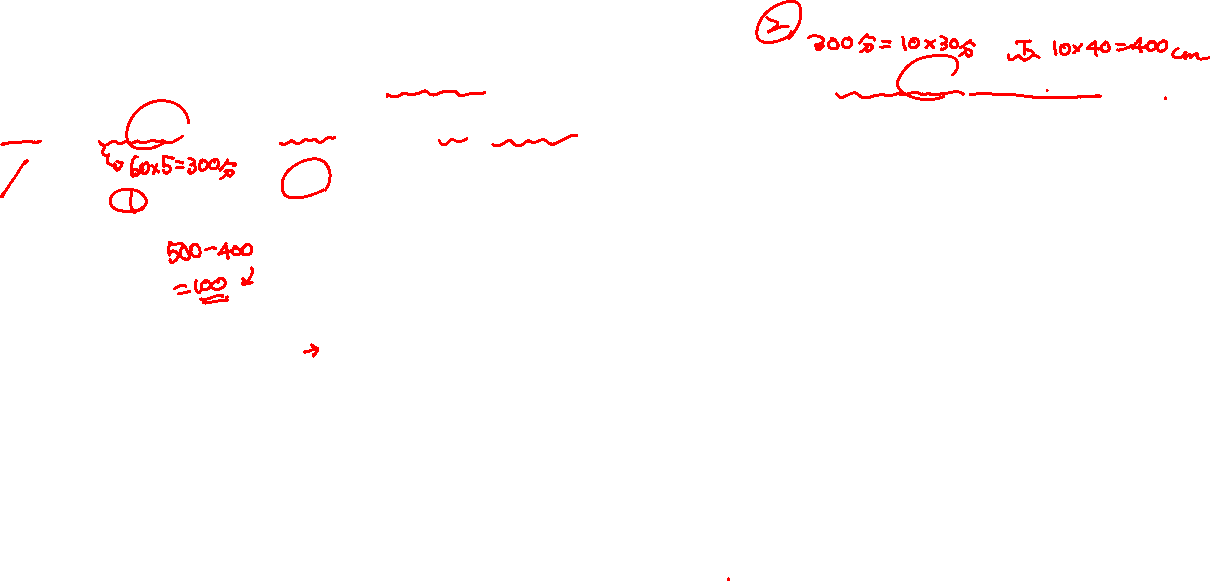 ②
300分=10×30分 下 10×40=400cm
60×5=300分
①
500-400
=100